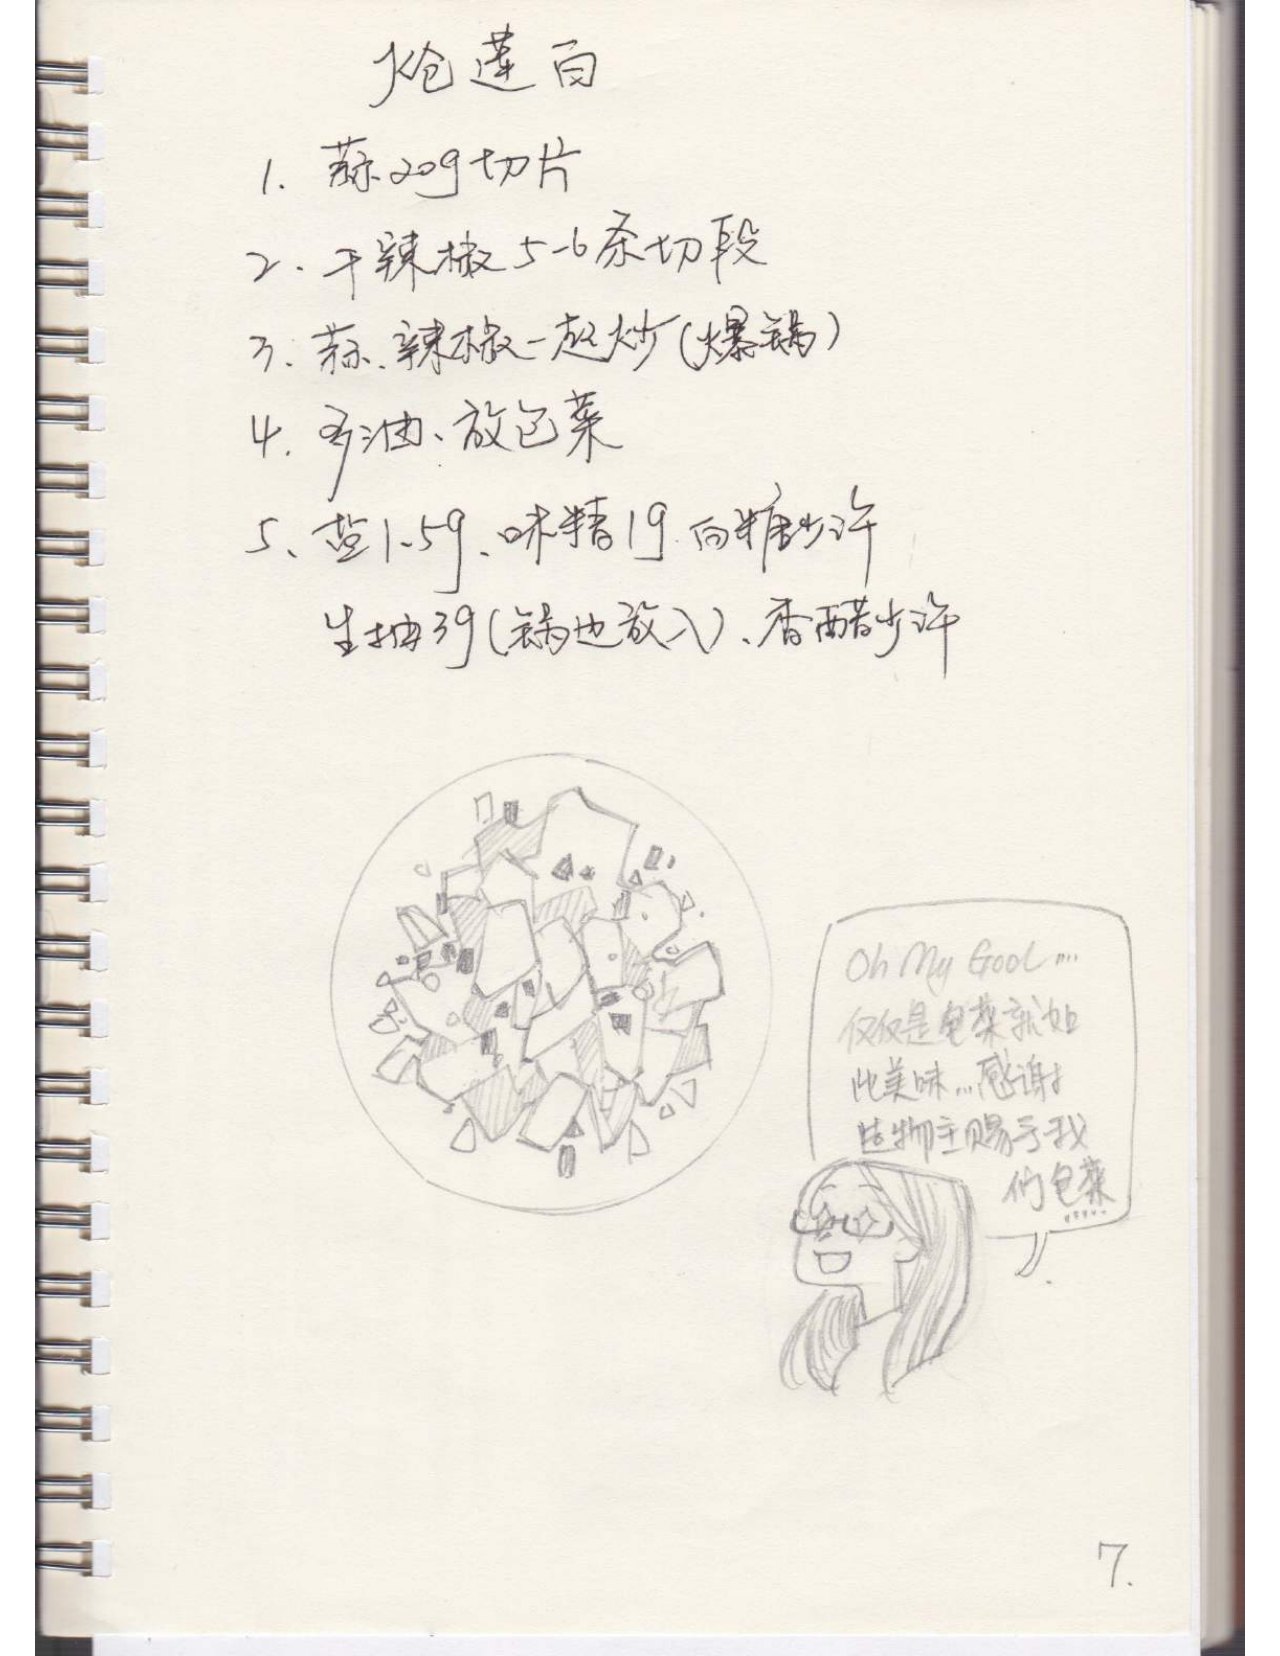 炝莲白
1. 蒜20g切片
2. 干辣椒5-6条切段
3. 蒜、辣椒一起炒(爆锅)
4. 多油、放包菜
5、盐1.5g、味精1g 白糖少许
生抽3g(锅边放入)、香醋少许
Oh My God....
仅仅是包菜就如
此美味...感谢
造物主赐予我
们包菜
.....
7.